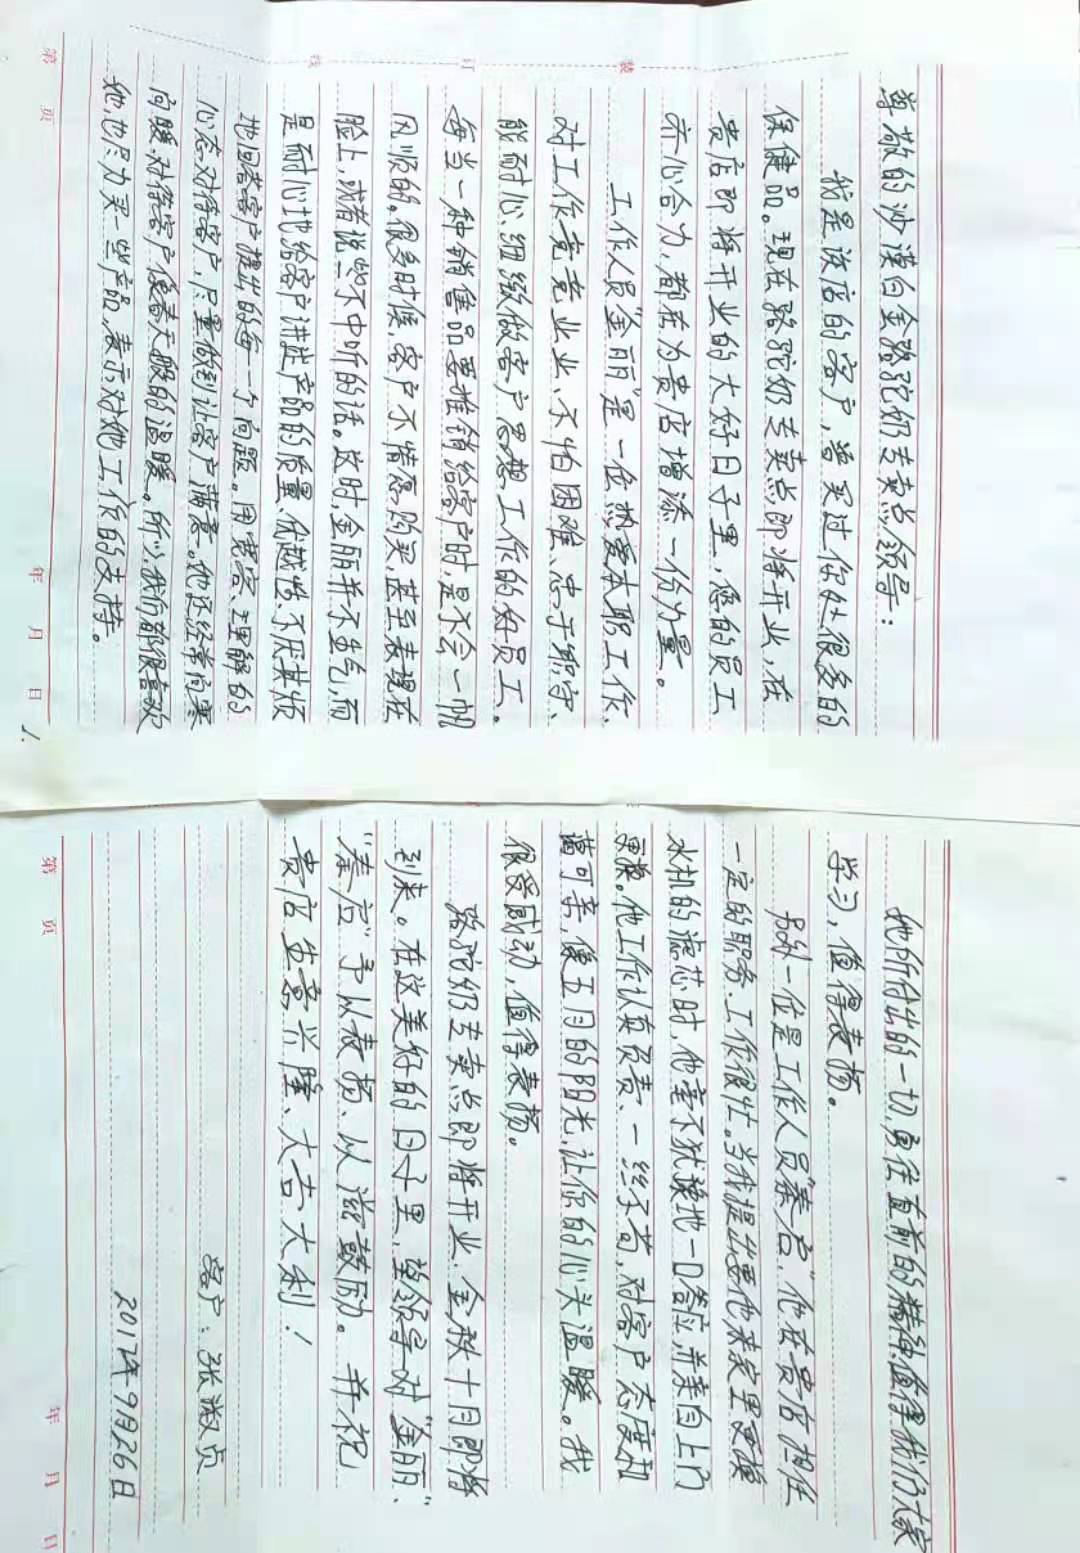 尊敬的沙漠白金骆驼奶专卖点领导：
我是该店的客户，曾买过你处很多的
保健品。现在骆驼奶专卖点即将开业，在
贵店即将开业的大好日子里，您的员工
齐心合力，都在为贵店增添一份力量。
工作人员“金丽”是一位热爱本职工作、
对工作兢兢业业、不怕困难、忠于职守、
能耐心、细致做客户思想工作的好员工。
每当一种销售品要推销给客户时，是不会一帆
风顺的。很多时候，客户不情愿购买，甚至表现在
脸上，或者说些不中听的话。这时，金丽并不生气，而
是耐心地给客户讲述产品的质量、优越性、不厌其烦
地回答客户提出的每一个问题。用宽容、理解的
心态对待客户，尽量做到让客户满意。她还经常问寒
问暖、对待客户像春天般的温暖。所以，我们都很喜欢
她，也尽力买一些产品，表示对她工作的支持。
装
订
线
第 页
年 月 日
1.
她所付出的一切，勇往直前的精神，值得我们大家
学习，值得表扬。
另外一位是工作人员“秦启”，他在贵店担任
一定的职务、工作很忙。当我提出要他来家里更换
水机的滤芯时，他毫不犹豫地一口答应，并亲自上门
更换。他工作认真负责、一丝不苟，对客户态度和
蔼可亲，像五月的阳光，让你的心头温暖。我
很受感动，值得表扬。
骆驼奶专卖点即将开业、金秋十月即将
到来。在这美好的日子里，望领导对“金丽”、
“秦启”予以表扬、以滋鼓励。并祝
贵店生意兴隆、大吉大利！
客户：张淑贞
2017年9月26日
第 页
年 月 日